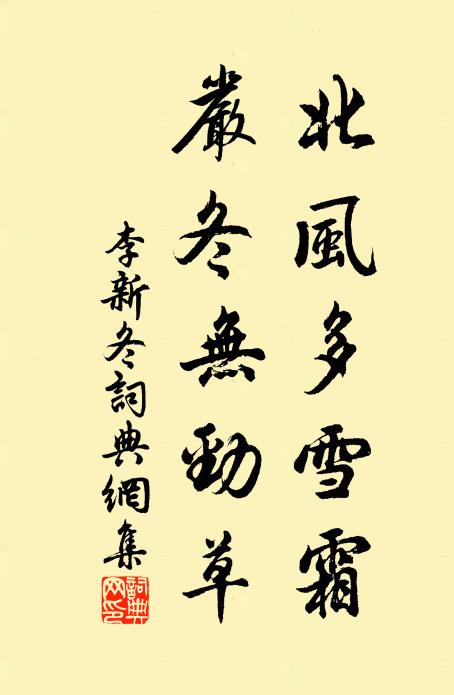 北風多雪霜
嚴冬無勁草
李新冬詞典網集
詞典網印